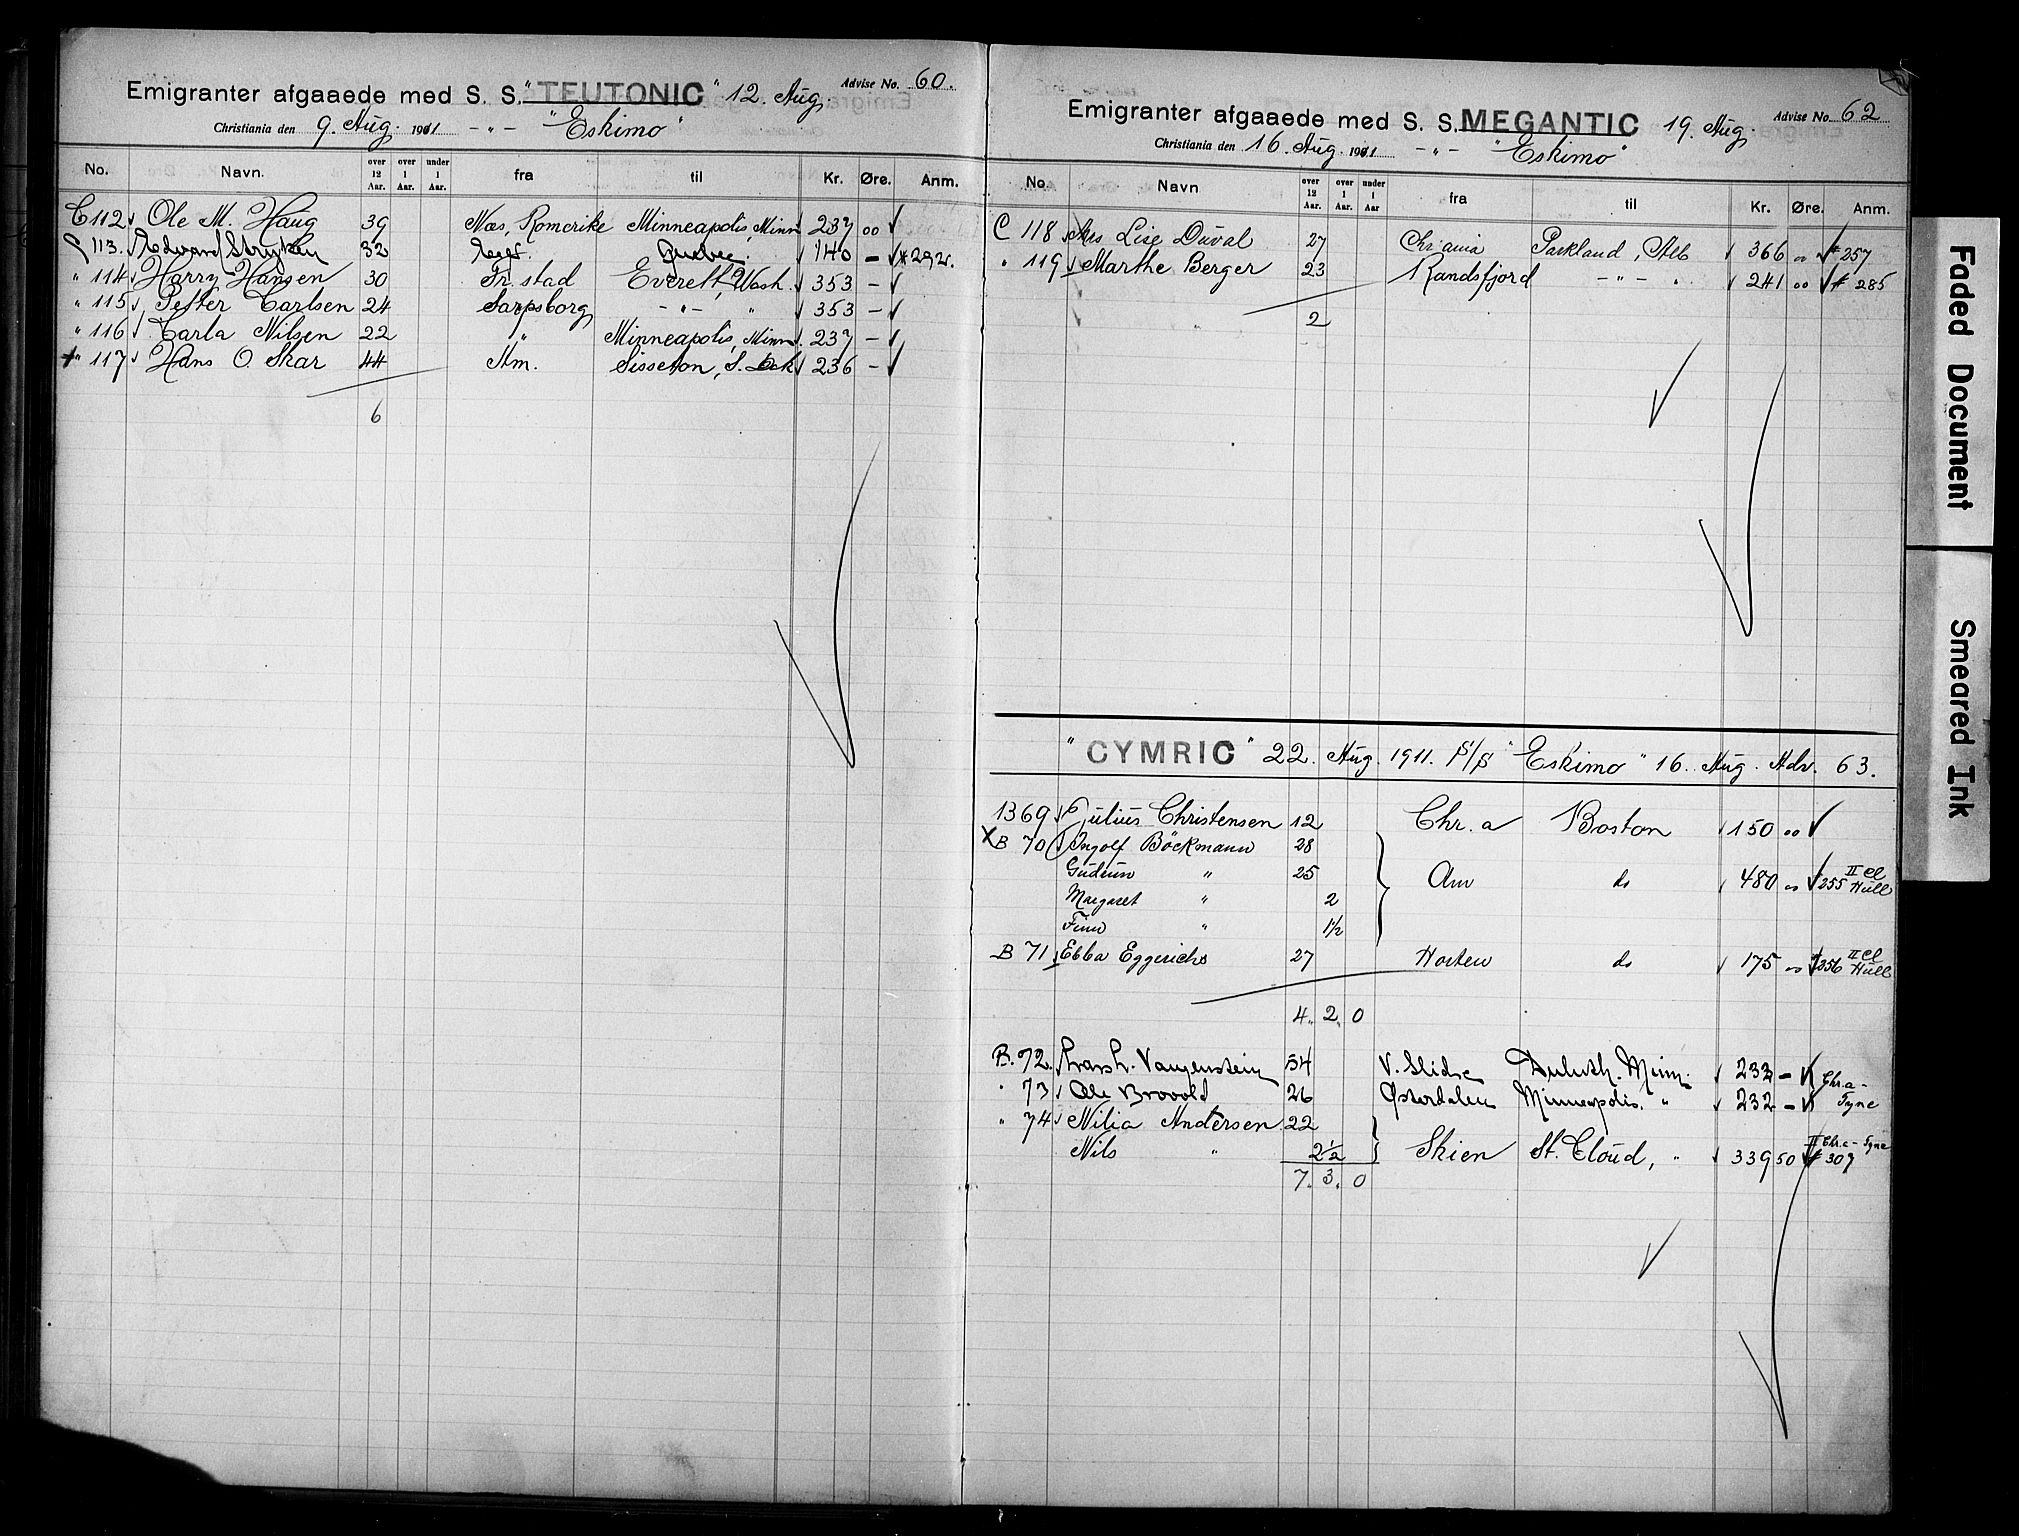 Emigranter afgaaede med S. S. "TEUTONIC" 12. Aug. Advise No. 60.
Christiania den 9. Aug. 1911 - " - "Eskimo"
No. Navn. over 12 Aar. over 1 Aar. under 1 Aar. fra til Kr. Øre. Anm.
C 112 Ole M. Haug 39 Næs, Romerike Minneapolis, Minn 237 00
C 113. Edvard Stryken 32 Quebec. 140 - # 292.
" 114 Harry Hansen 30 Fr. stad Everett, Wash. 353 -
" 115 Petter Carlsen 24 Sarpsborg - " - " 353 -
" 116 Carla Nilsen 22 " Minneapolis, Minn. 237 -
" 117 Hans O. Skar 44 Hm. Sisseton, S. Dak 236 -
6
Emigranter afgaaede med S. S. MEGANTIC 19. Aug. Advise No. 62
Christiania den 16. Aug. 1911 - " - "Eskimo"
No. Navn over 12 Aar. over 1 Aar. under 1 Aar fra til Kr. Øre. Anm.
C 118 Mrs Lise Duval 27 Chr.ania Parkland, Alb 366 00 # 257
" 119 Marthe Berger 23 Randsfjord - " - " 241 00 # 285
2
"CYMRIC" 22. Aug. 1911. S/S "Eskimo" 16. Aug. Adv. 63.
1369 Julius Christensen 12 Chr.a Boston 150 00
X B 70 Ingolf Böckmann 28
Gudrun " 25 Am do 480 00 255 II cl Hull
Margaret " 2
Finn " 1 1/2
B 71 Ebba Eggerichs 27 Horten do 175 00 256 II cl Hull
4. 2. 0
B. 72. Vangenstein 54 V. Slidre Duluth. Minn. 232 - Chr.a -
" 73 Ole Brovold 26 Østerdalen Minneapolis. " 232 - Tyne
" 74 Nilia Andersen 22
Nils " 2 1/2 Skien St. Cloud, " 339 50 II Chr.a - Tyne # 307
7. 3. 0
Faded Document
Smeared Ink